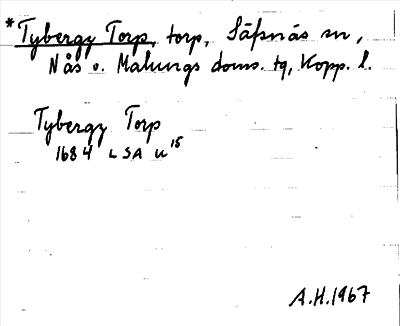 *Tybergy Torp, torp, Säfsnäs sn,
Nås o. Malungs doms. tg, Kopp. l.
Tybergy Torp
1684 LSA U15
A.H.1967